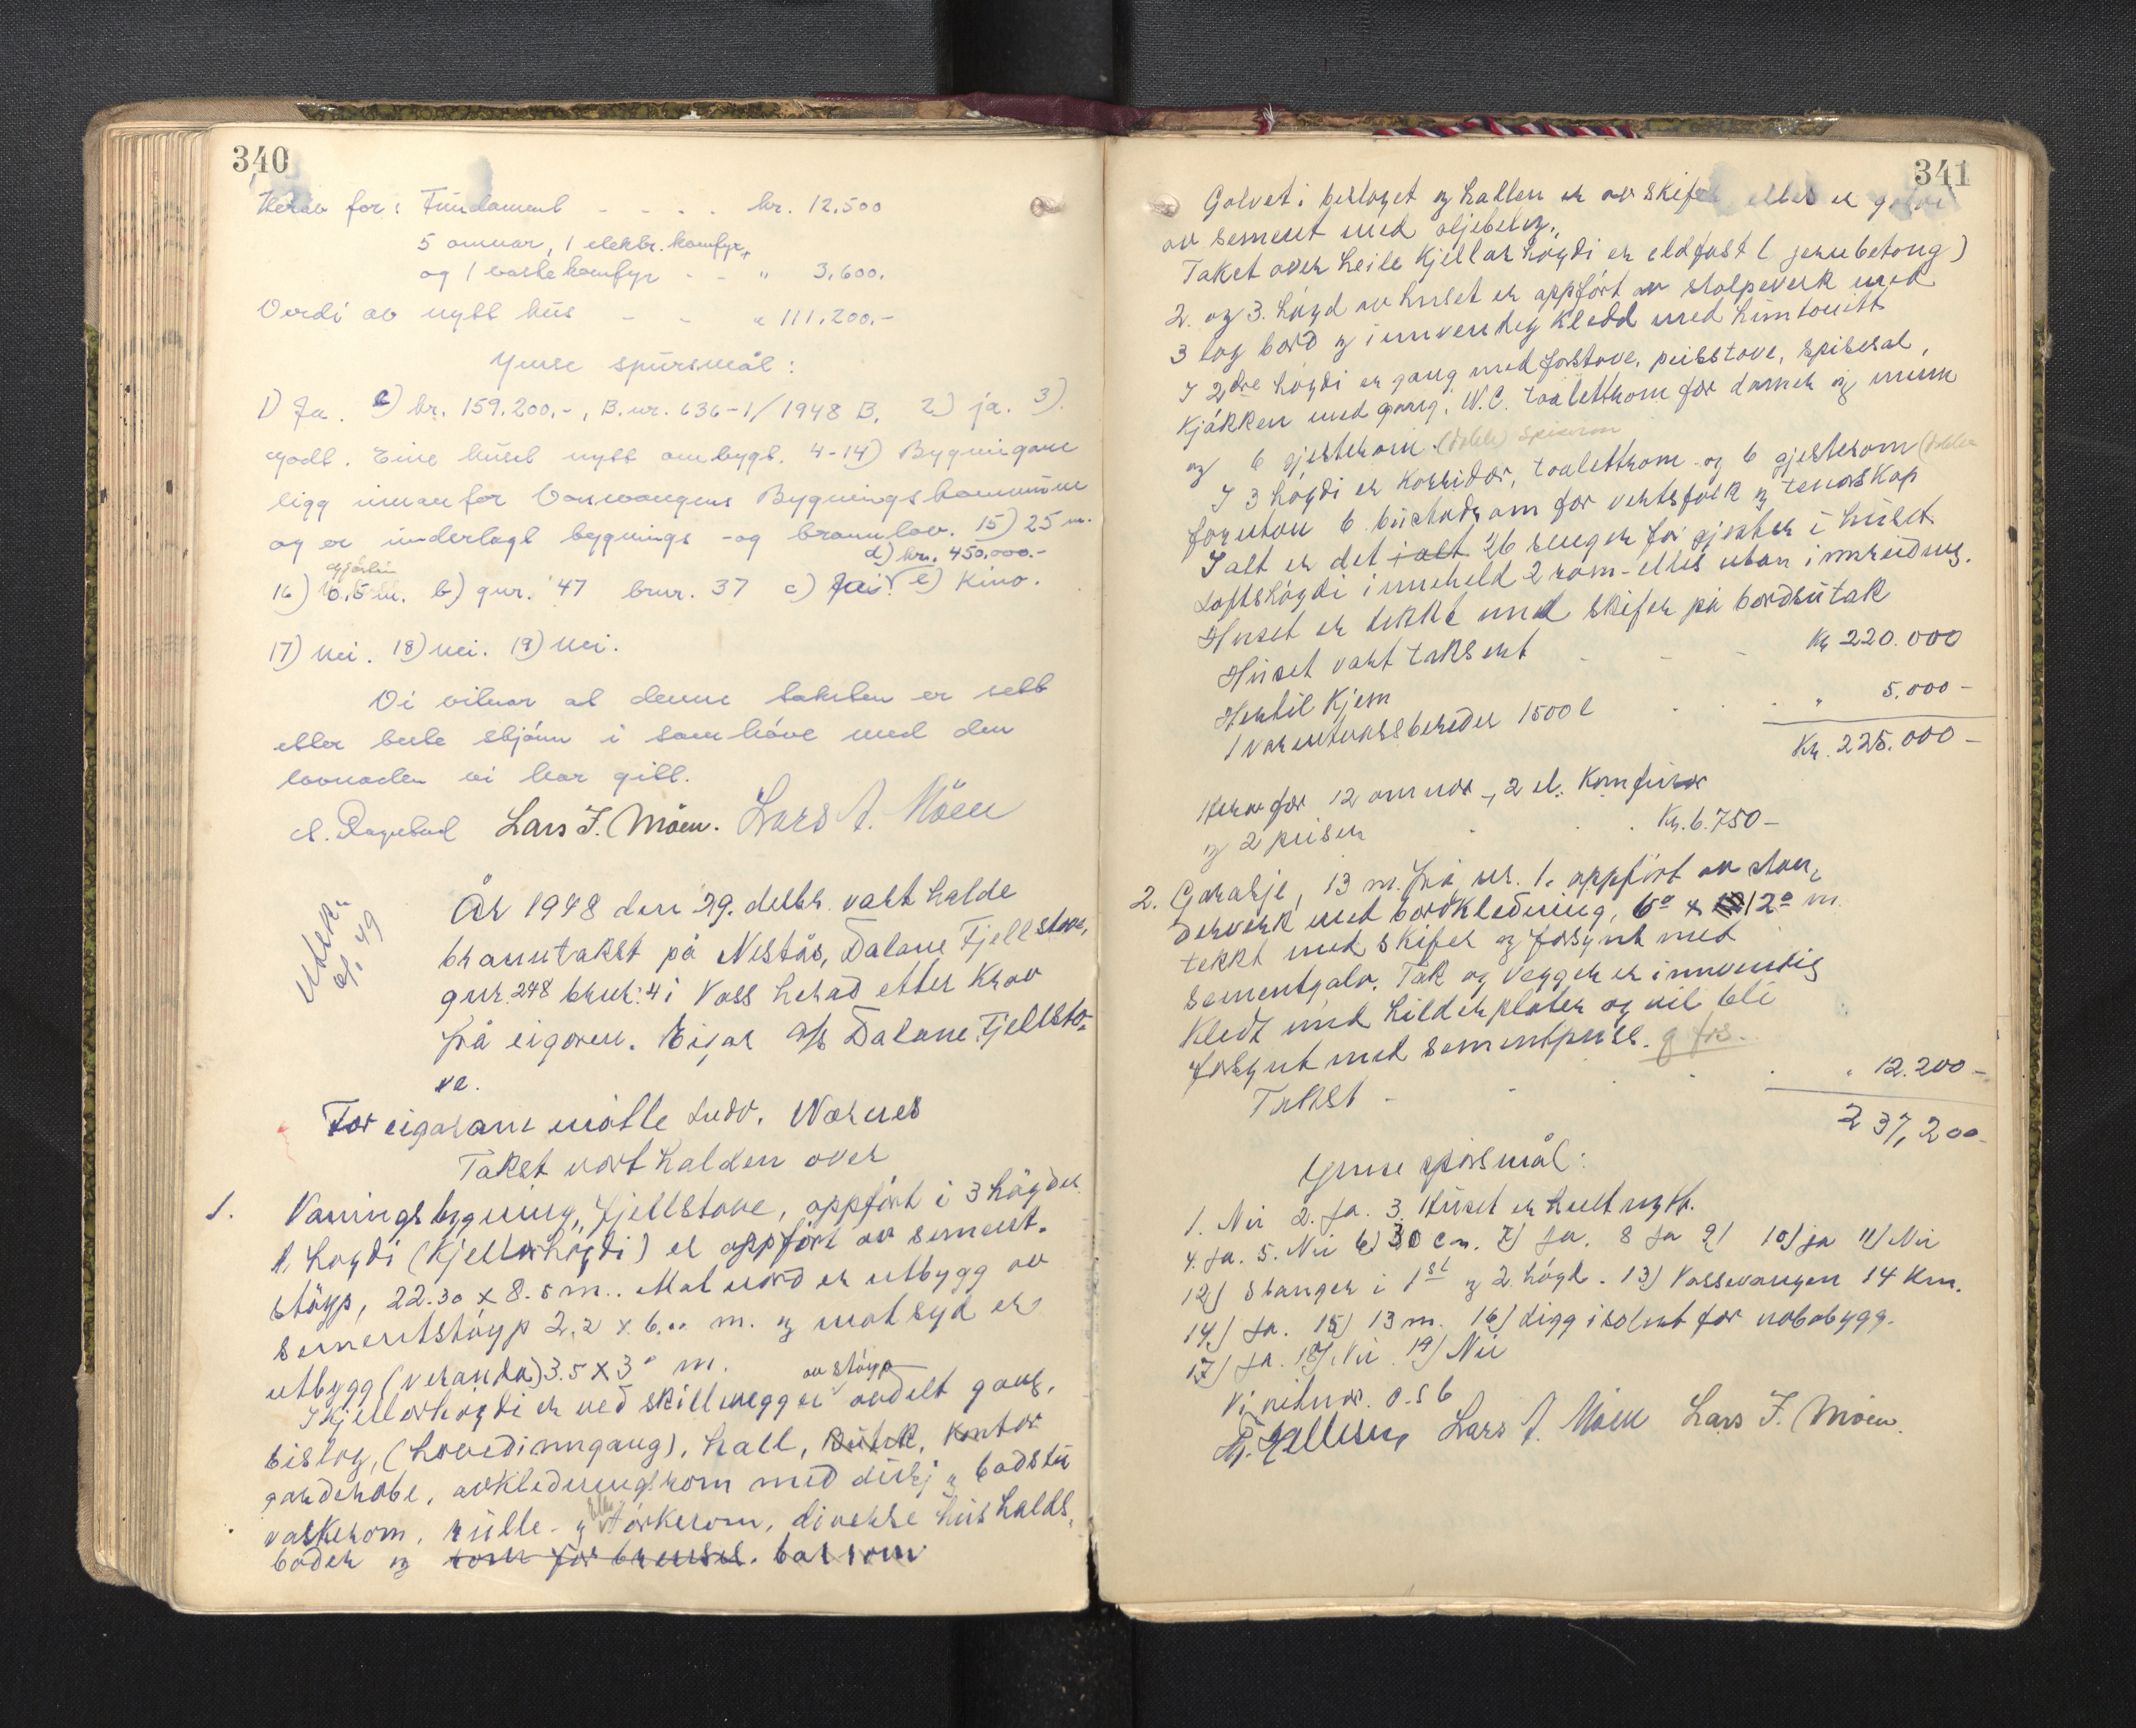 340
Herav for: Fundament - - . . kr. 12.500
5 omnar, 1 elektr. komfyr,
og 1 vaske komfyr - - " 3.600.
Verdi av nytt hus - - " 111.200.-
Ymse spursmål:
1) Ja. e) kr. 159.200.-, B.nr. 636-1/1948 B. 2) ja. 3).
godt. Eine huset nytt ombygt. 4-14) Bygningane
ligg innanfor Vossevangens Bygningskommune
og er underlagt bygnings- og brannlov. 15) 25 m.
d) kr. 450.000.-
16) 0,5 m. b) gnr. 47 brnr. 37 c) e) Kino.
17) Nei. 18) Nei. 19) Nei.
Vi vitnar at denne taksten er sett
etter beste skjønn i samhøve med den
lovnaden vi har gitt.
Lars J. Möen. Lars A. Möen
År 1948 den 29. desbr. vart halde
branntakst på Nestås, Dalane Fjellstove,
gnr. 248 bruk: 4 i Voss herad etter krav
frå eigaren. Eigar A/S Dalane Fjellsto-
ve.
For eigarane møtte Ludv. Nornes
Takst vart halden over
1. Våningsbygning, fjellstove, oppfört i 3 högder
1. högdi (kjellarhögdi) er oppfört av sement-
stöyp, 22.30 x 8.5 m.. Mot nord er utbygg av
sementstöyp 2.2 x 6.00 m. og mot syd er
utbygg (veranda) 3.5 x 3° m.
av stöyp
I kjellarhögdi er ved skilleveggar avdelt gang,
bislag, (hovedinngang), hall, butikk, kontor
garderobe, avkledningsrom med dusj og badstu
vaskerom, rulle- og törkerom, diverse hushalds-
boder og rom for brensel. barrom
341
Golvet i bislaget og hallen er av skifer elles er golvet
av sement med oljebelegg.
Taket over heile kjellarhögdi er eldfast (jernbetong)
2. og 3. högd av huset er oppfört av stolpeverk med
3 lag bord og innvendig kledd med huntonitt
I 2dre högdi er gang med forstove, peisstove, spisesal,
kjökken med gang, W.C. toalettrom for damer og menn
og 6 gjesterom (doble)
I 3 högdi er korridor, toalettrom og 6 gjesterom (doble
foruton 6 bustadrom for vertsfolk og tenarskap
I alt er det i alt 26 senger for gjester i huset.
Loftshögdi inneheld 2 rom - elles utan innreidning.
Huset er tekke med skifer på bordsutak
Huset vart taksert - - - Kr 220.000
Hertil kjem
1 varmtvassbereder 1500 l . . . " 5.000-
Kr. 225.000-
Herav for 12 omnar, 2 el. komfurar
og 2 peiser . . . Kr. 6.750-
2. Garasje, 13 m. frå nr. 1. oppfört av sten-
derverk med bordkledning, 6° x 12° m.
tekkt med skifer og forsynt med
sementgolv. Tak og vegger er innvendig
kledt med hilderplater og vil bli
forsynt med sementpuss.
Takst - - - . " 12.200-
237,200-
Ymse spörsmål:
1. Nei 2. Ja. 3. Huset er heilt nytt.
4. Ja. 5. Nei 6) 30 cm. 7) Ja. 8 Ja 9) 10) ja 11) Nei
12) Slanger i 1st og 2. högd. 13) Vossevangen 14 Km.
14) Ja. 15) 13 m. 16) Ligg isolert for nabobygg.
17) Ja. 18) Nei. 19) Nei
Vi vitnar. o.s.b
Lars A. Möen Lars J. Möen.